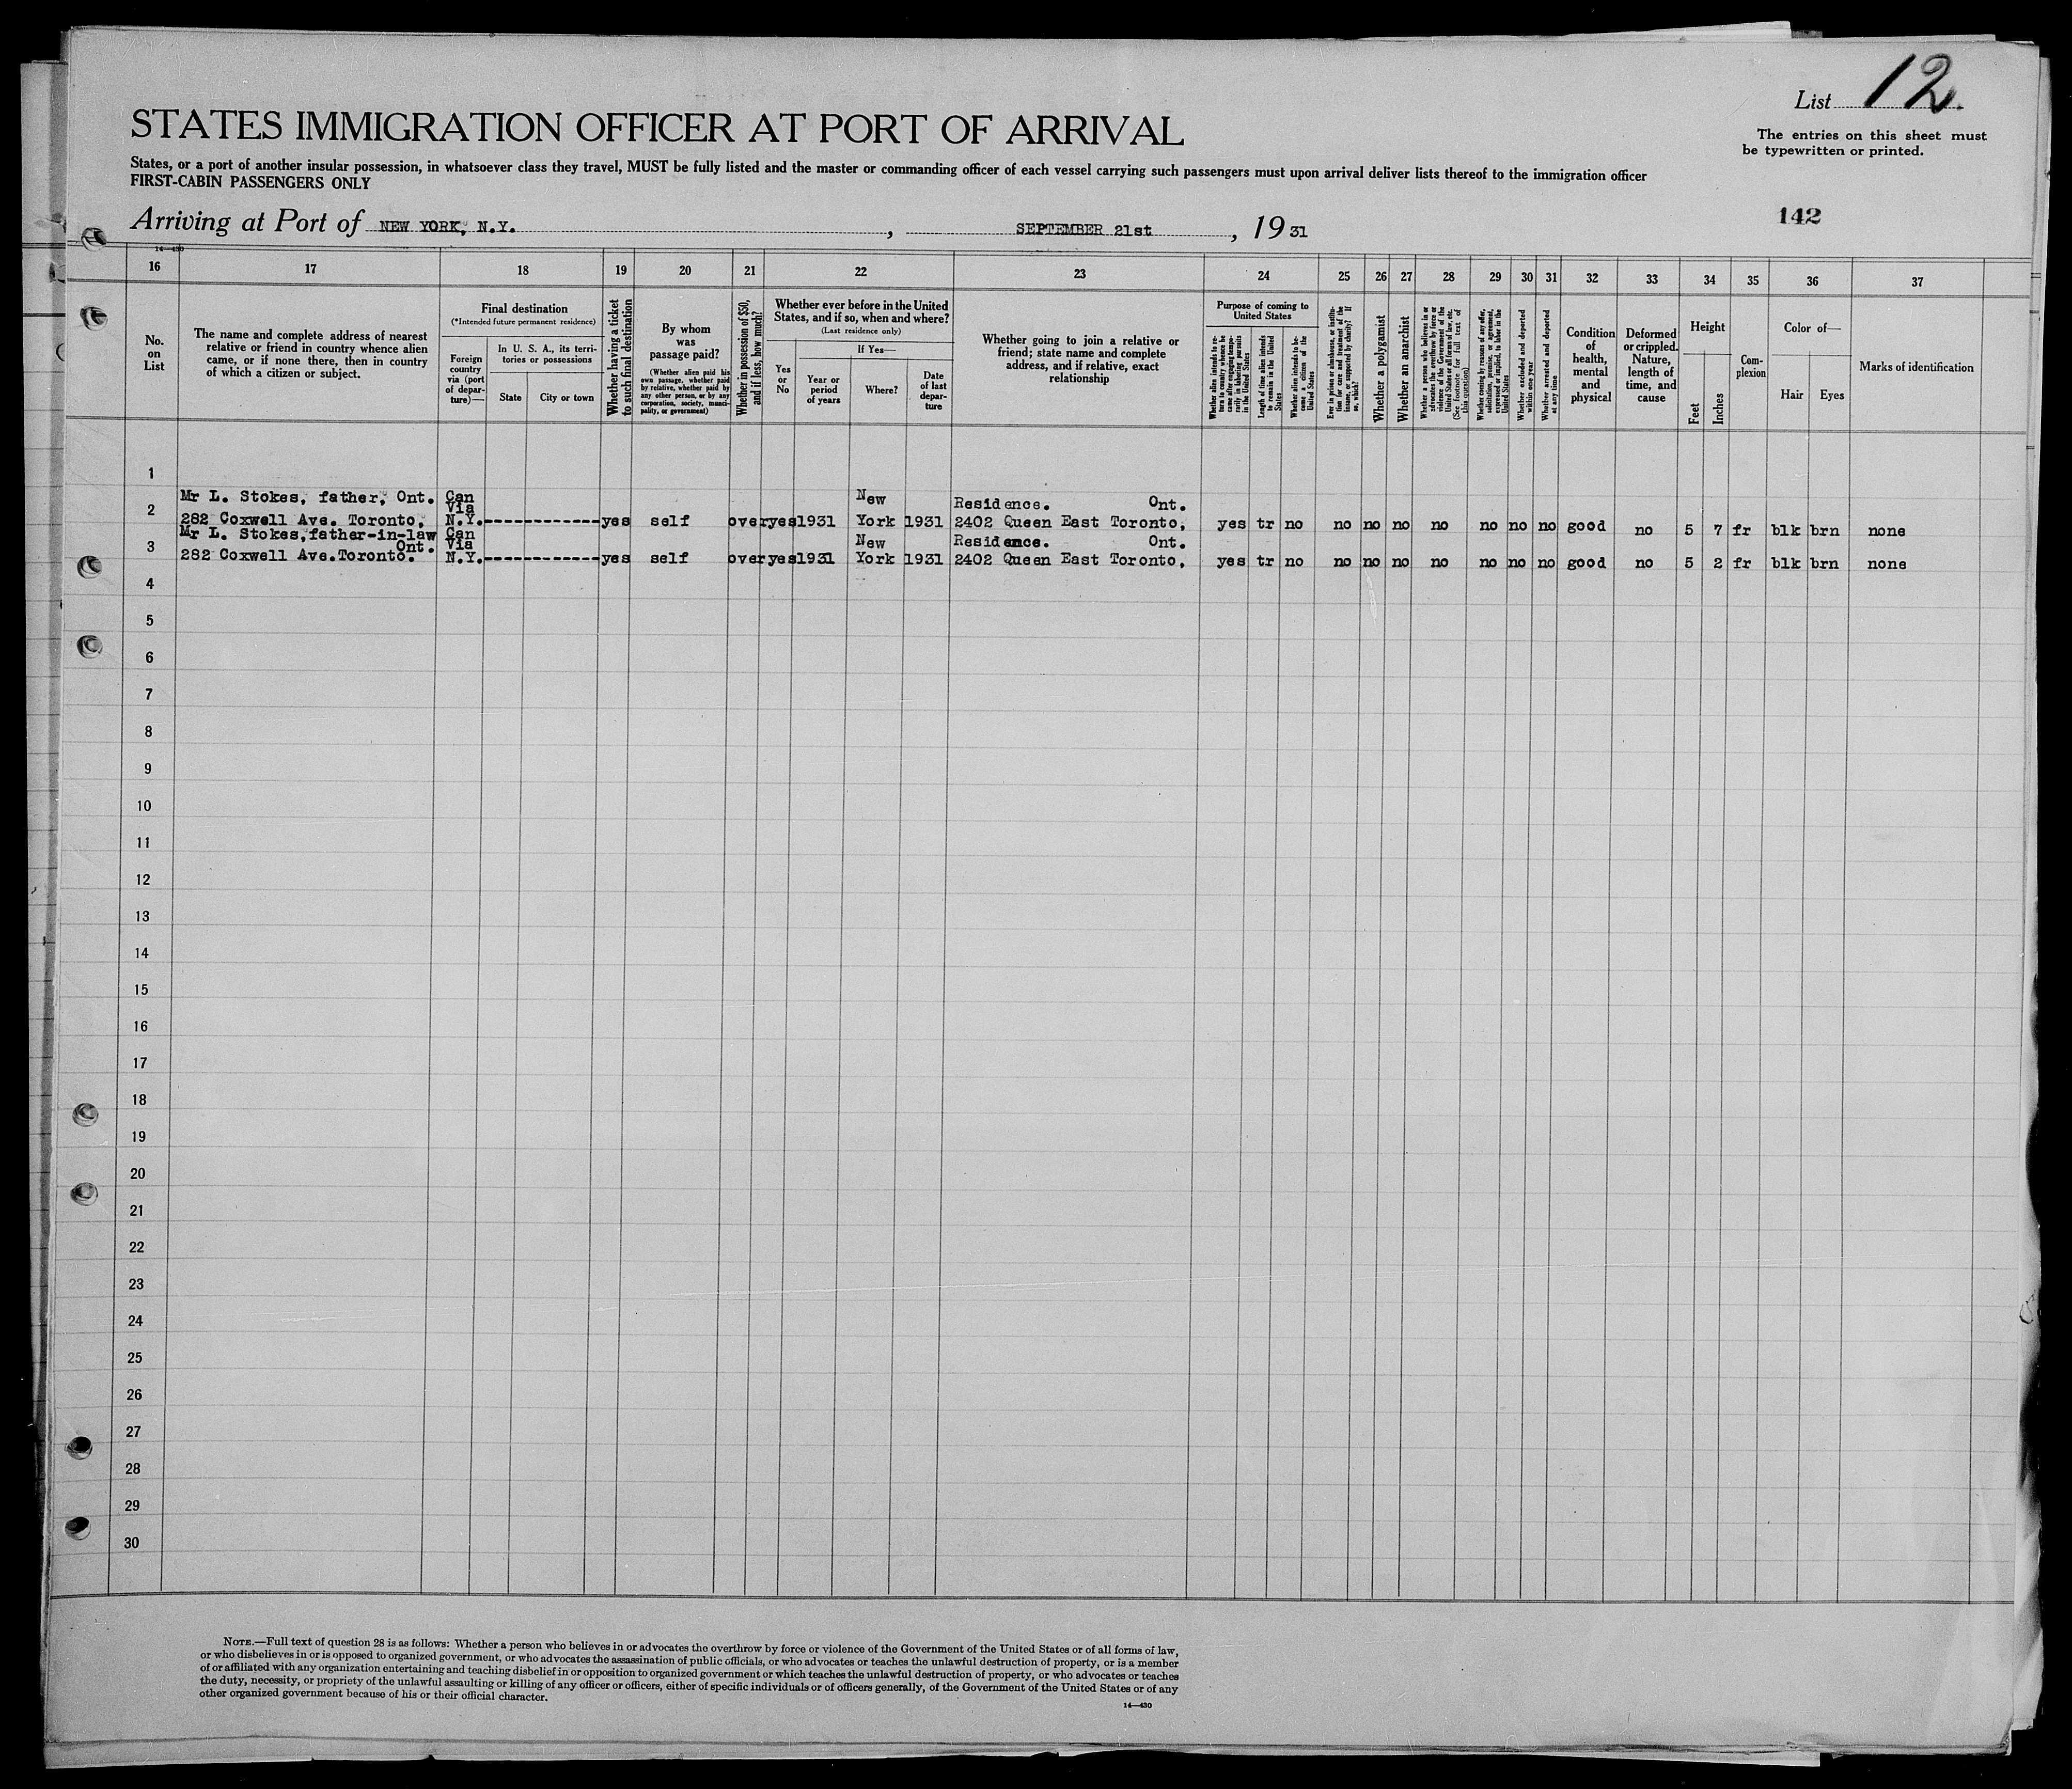 List 12.
STATES IMMIGRATION OFFICER AT PORT OF ARRIVAL
The entries on this sheet must
be typewritten or printed.
States, or a port of another insular possession, in whatsoever class they travel, MUST be fully listed and the master or commanding officer of each vessel carrying such passengers must upon arrival deliver lists thereof to the immigration officer
FIRST-CABIN PASSENGERS ONLY
Arriving at Port of NEW YORK, N.Y. , SEPTEMBER 21st , 19 31
142
14—430
16 17 18 19 20 21 22 23 24 25 26 27 28 29 30 31 32 33 34 35 36 37
No.
on
List
The name and complete address of nearest
relative or friend in country whence alien
came, or if none there, then in country
of which a citizen or subject.
Final destination
(*Intended future permanent residence)
Foreign
country
via (port
of depar-
ture)—
In U. S. A., its terri-
tories or possessions
State City or town
Whether having a ticket
to such final destination
By whom
was
passage paid?
(Whether alien paid his
own passage, whether paid
by relative, whether paid by
any other person, or by any
corporation, society, munici-
pality, or government)
Whether in possession of $50,
and if less, how much?
Whether ever before in the United
States, and if so, when and where?
(Last residence only)
Yes
or
No
If Yes—
Year or
period
of years
Where?
Date
of last
depar-
ture
Whether going to join a relative or
friend; state name and complete
address, and if relative, exact
relationship
Purpose of coming to
United States
Whether alien intends to re-
turn to country whence he
came after engaging tempo-
rarily in laboring pursuits
in the United States
Length of time alien intends
to remain in the United
States
Whether alien intends to be-
come a citizen of the
United States
Ever in prison or almshouse, or institu-
tion for care and treatment of the
insane, or supported by charity? If
so, which?
Whether a polygamist
Whether an anarchist
Whether a person who believes in or
advocates the overthrow by force or
violence of the Government of the
United States or all forms of law, etc.
(See footnote for full text of
this question)
Whether coming by reasons of any offer,
solicitation, promise, or agreement,
expressed or implied, to labor in the
United States
Whether excluded and deported
within one year
Whether arrested and deported
at any time
Condition
of
health,
mental
and
physical
Deformed
or crippled.
Nature,
length of
time, and
cause
Height
Feet
Inches
Com-
plexion
Color of—
Hair Eyes
Marks of identification
1
Mr L. Stokes, father, Ont. Can New Residence. Ont.
Via
2 282 Coxwell Ave. Toronto, N.Y.------------yes self over yes 1931 York 1931 2402 Queen East Toronto, yes tr no no no no no no no no good no 5 7 fr blk brn none
Mr L. Stokes,father-in-law Can New Residence. Ont.
Ont. Via
3 282 Coxwell Ave.Toronto. N.Y.------------yes self over yes 1931 York 1931 2402 Queen East Toronto, yes tr no no no no no no no no good no 5 2 fr blk brn none
4
5
6
7
8
9
10
11
12
13
14
15
16
17
18
19
20
21
22
23
24
25
26
27
28
29
30
NOTE.—Full text of question 28 is as follows: Whether a person who believes in or advocates the overthrow by force or violence of the Government of the United States or of all forms of law,
or who disbelieves in or is opposed to organized government, or who advocates the assassination of public officials, or who advocates or teaches the unlawful destruction of property, or is a member
of or affiliated with any organization entertaining and teaching disbelief in or opposition to organized government or which teaches the unlawful destruction of property, or who advocates or teaches
the duty, necessity, or propriety of the unlawful assaulting or killing of any officer or officers, either of specific individuals or of officers generally, of the Government of the United States or of any
other organized government because of his or their official character.
14—430